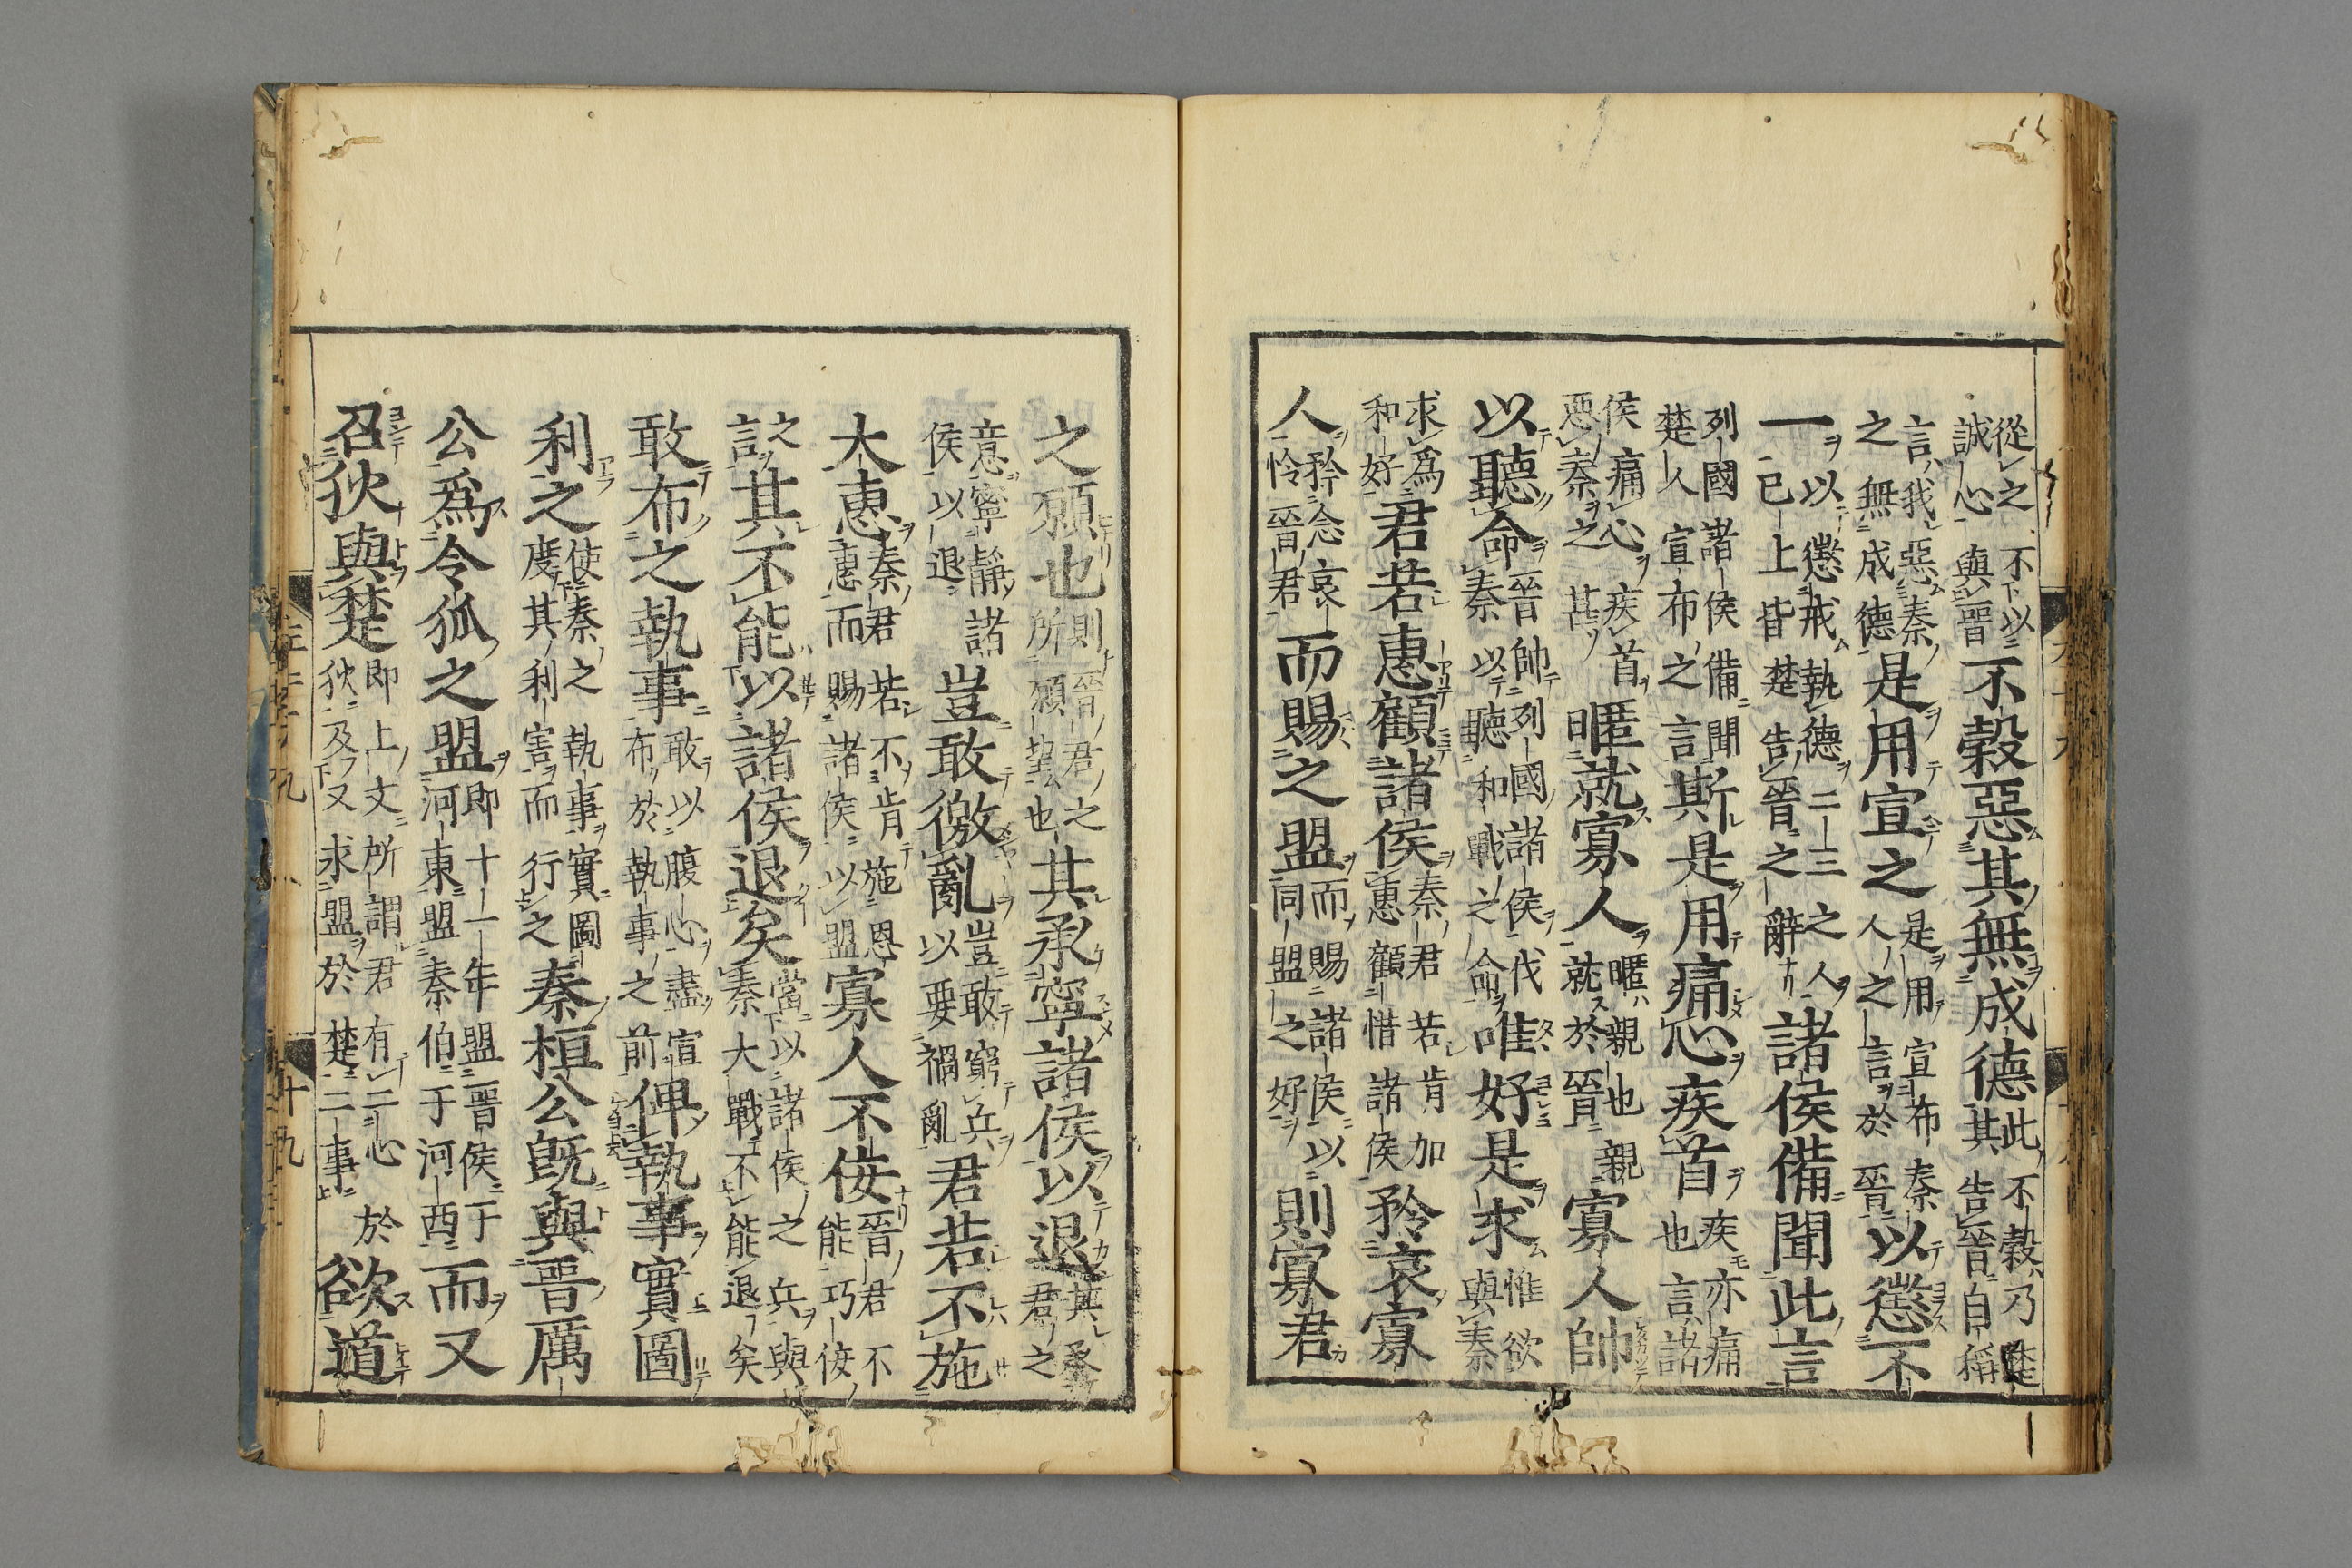 從之不以誠心與晉不穀惡其無成德此不穀乃楚其告晉自稱
言我惡秦之無成德是用宣之是用宣布秦人之言於晉以懲不
一以懲戒執德二三之人已上皆楚告晉之辭諸侯備聞此言
列國諸侯備聞楚人宣布之言斯是用痛心疾首疾亦痛也言諸
侯痛心疾首惡秦之甚暱就寡人暱親也親就於晉寡人帥
以聽命晉帥列國諸侯伐秦以聽和戰之命唯好是求惟欲與秦
求爲和好君若惠顧諸侯秦君若肯加惠顧惜諸侯矜哀寡
人矜念哀怜晉君而賜之盟而賜諸侯以同盟之好則寡君
之願也則晉君之所願望也其承寧諸侯以退其承君之
意寧靜諸侯以退豈敢徼亂豈敢窮兵以要禍亂君若不施
大惠秦君若不肯施恩惠而賜諸侯以盟寡人不佞晉君不能巧佞
之言其不能以諸侯退矣當以諸侯之兵與秦大戰不能退矣
敢布之執事敢以腹心盡宣布於執事之前俾執事實圖
利之使秦之執事實圖度其利害而行之秦桓公既與晉厲
公爲令狐之盟即十一年盟晉侯于河東盟秦伯于河西而又
召狄與楚即上文所謂君有二心於狄及又求盟於楚二事欲道
十九